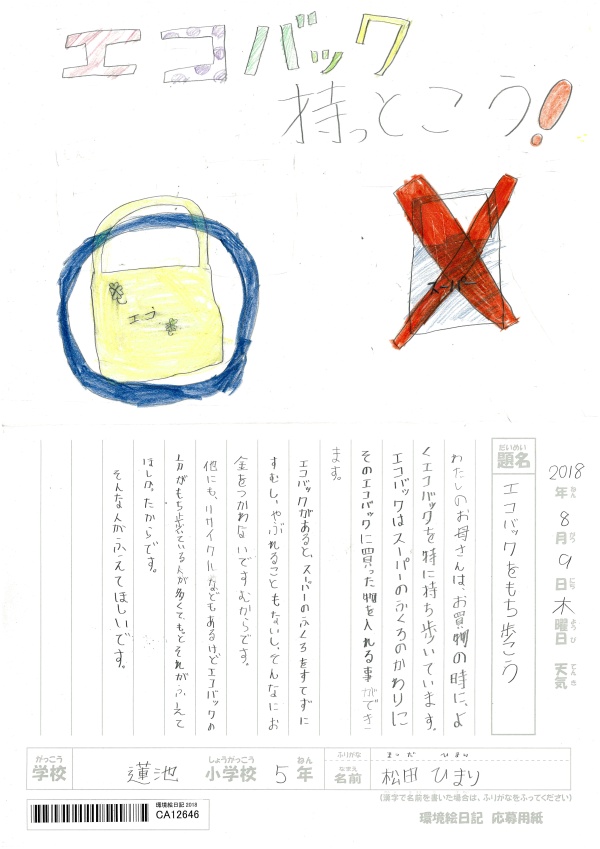 エコバック
持っとこう!
エコ
スーパー
2018年 8月 9日 木曜日 天気
ねん がつ にち ようび てんき
だいめい
題名
エコバックをもち歩こう
わたしのお母さんは、お買物の時に、よ
くエコバックを特に持ち歩いています。
エコバックはスーパーのふくろのかわりに
そのエコバックに買った物を入れる事ができ
ます。
エコバックがあると、スーパーのふくろをすてずに
すむし、やぶれることもないし、そんなにお
金をつかわないですむからです。
他にも、リサイクルなどもあるけどエコバックの
方がもち歩いている人が多くて、もっとそれがふえて
ほしかったからです。
そんな人がふえてほしいです。
がっこう しょうがっこう ねん
学校 蓮池 小学校 5年
ふりがな まつだ ひまり
なまえ
名前 松田 ひまり
(漢字で名前を書いた場合は、ふりがなをふってください)
環境絵日記 2018
CA12646
環境絵日記 応募用紙